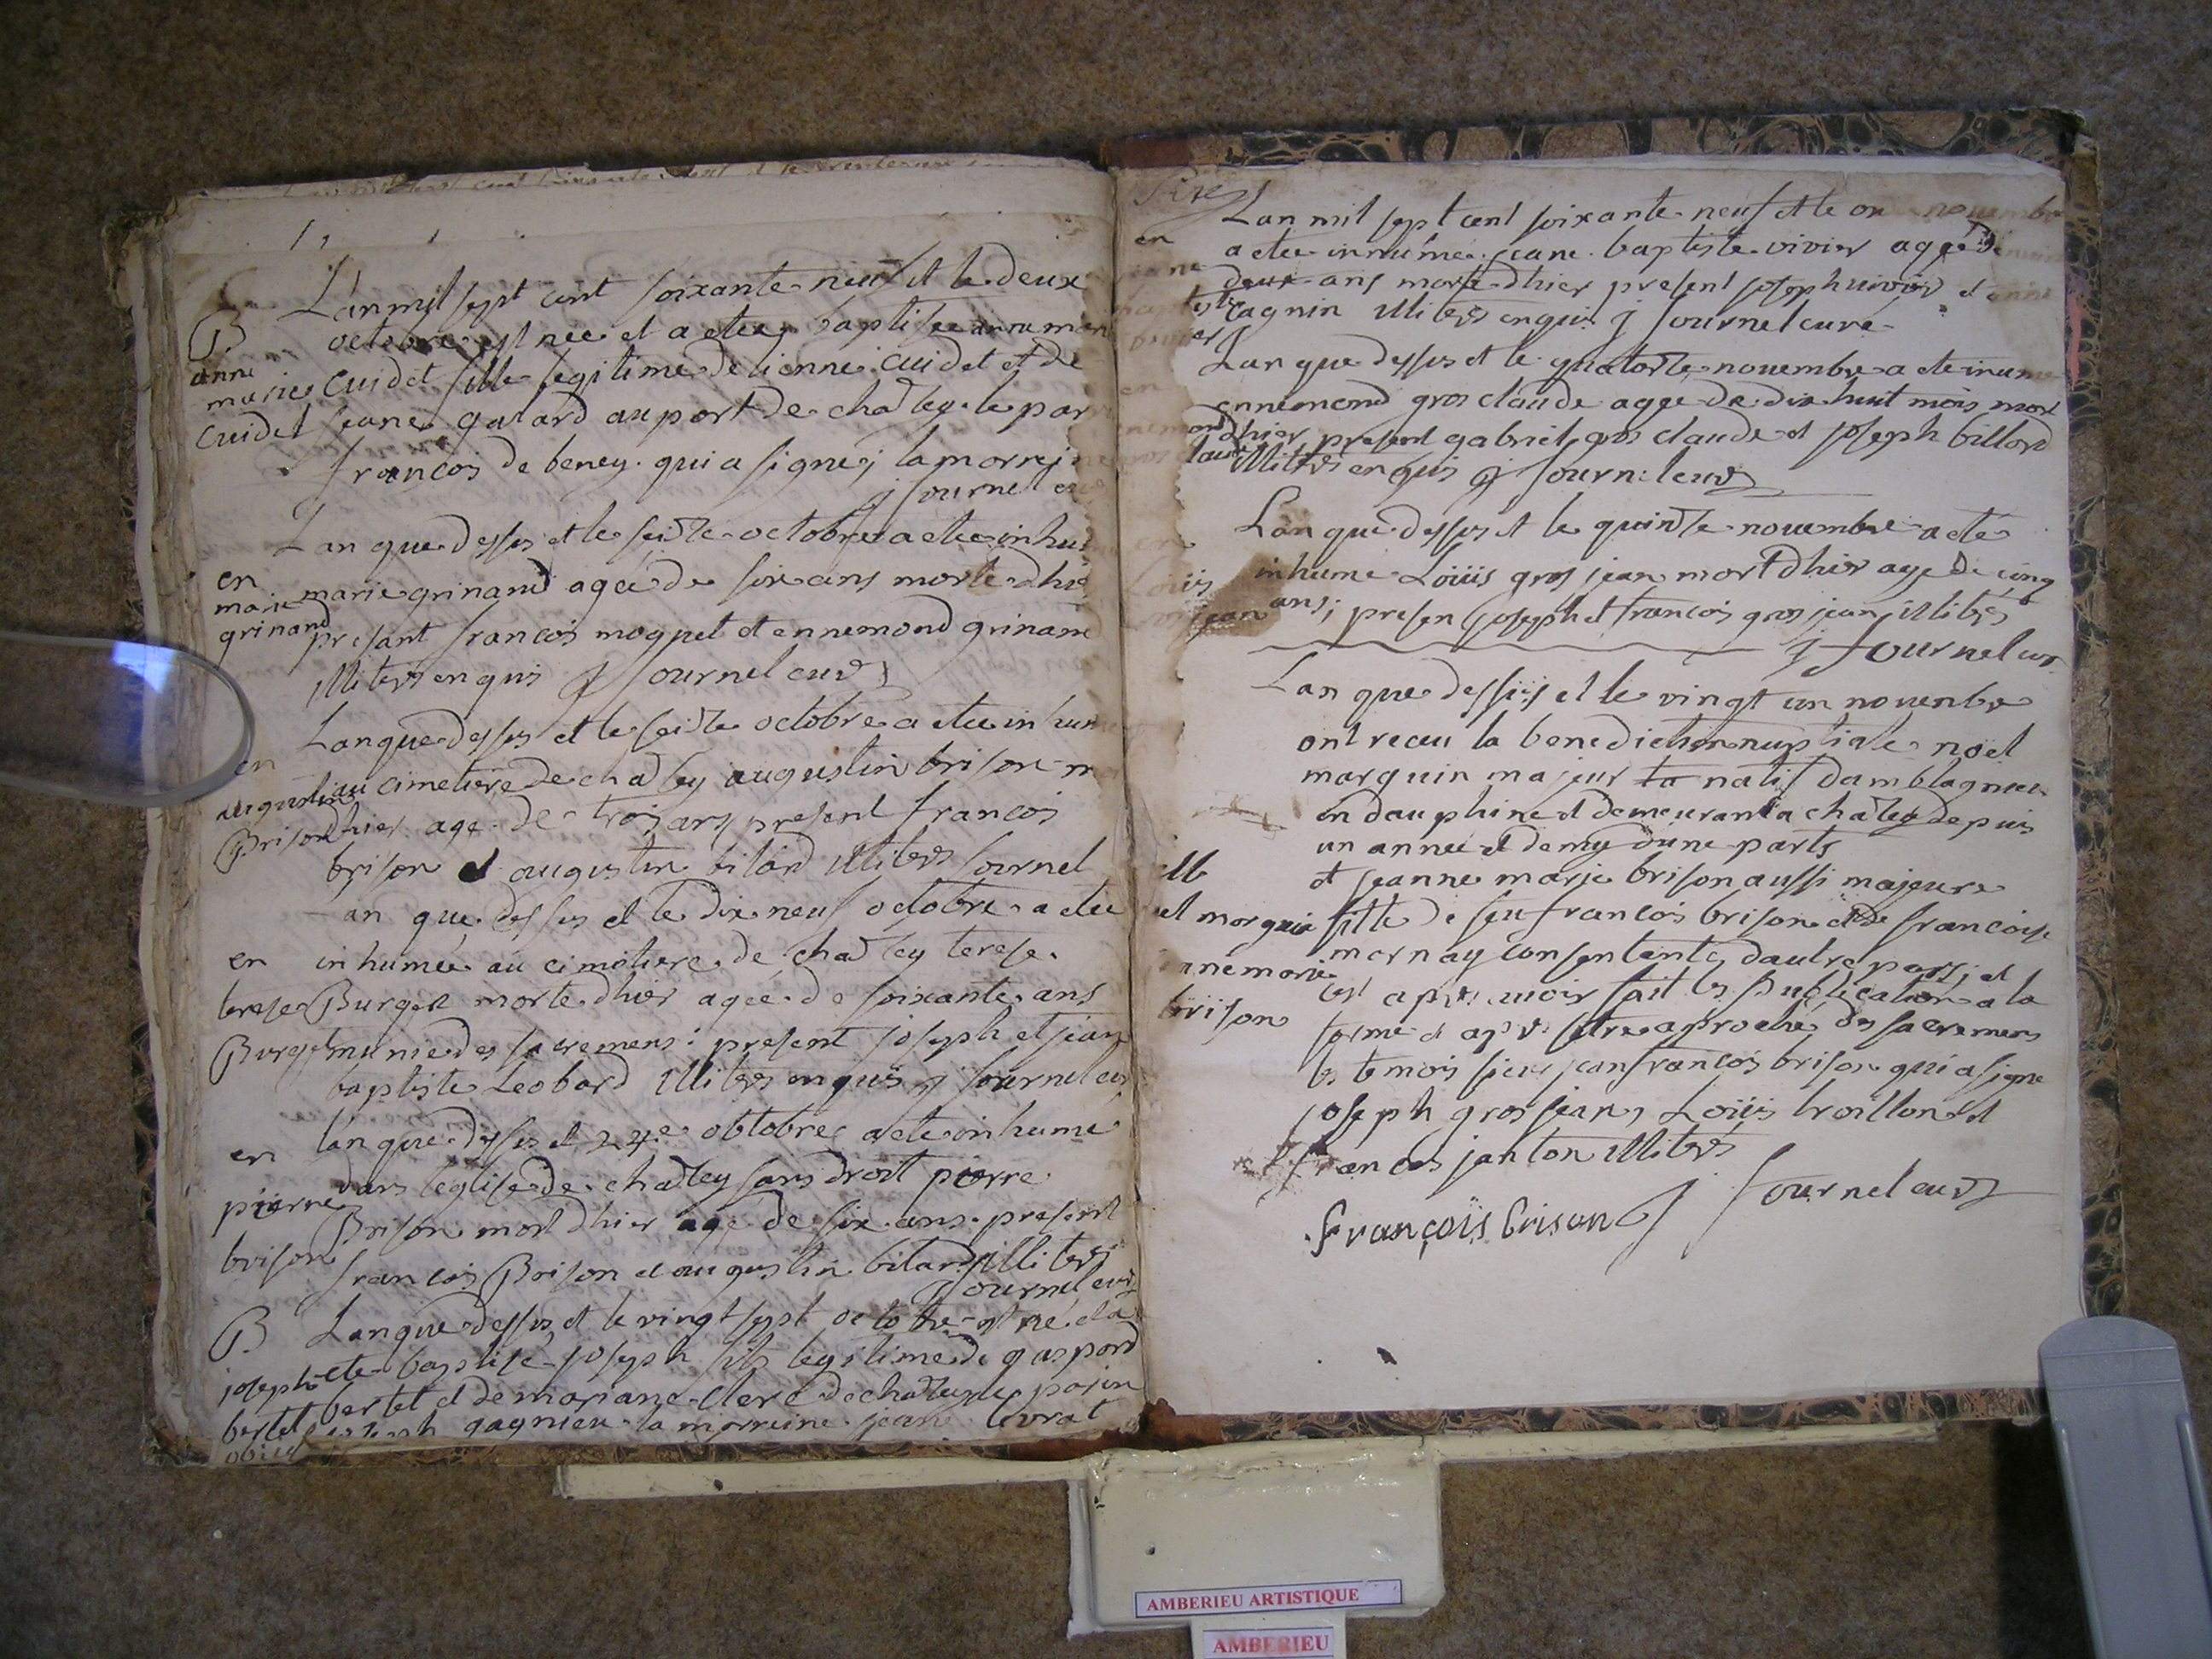 B
anne
marie
cuidet
L'an mil sept cent soixante neuf et le deux
octobre est née et a etee baptisee annamari
cuidet fille legitime detienne cuidet et de
jeane galard au port de chazey le par
francois de beney qui a signe j la marreine
j fournel
en
marie
grinand
Lan que dessus et le seizte octobre a etee inhu
marie grinand agée de six ans morte dhie
presant francois moquet et ennemond grinan
illiterés enquis j fournel curé
en
augustin
Brison
Lan que dessus et le seizte octobre a etee inhum
au cimetiere de chazey augustin brison m
dhier age de trois ans present francois
brison et augustin bilard illiterés fournel
en
terese
Burget
an que dessus et le dix neuf octobre a etee
inhumée au cimetiere de chazey terese
Burget morte dhier agée de soixante ans
munie des sacremens present joseph et jean
baptiste Leobard illiterés enquis j fournel cur
en
pierre
brison
lan que dessus et 24e obtobre a ete inhume
dans leglise de chazey sans droit pierre
Brison mort dhier age de six ans present
francois Brison et augustin bilard illiterés
j fournel curé
B
joseph
bertet
Lan que dessus et le vingt sept octobre est né et a
ete baptisé joseph fils legitime de gaspard
bertet et de mariane clerc de chazey le parin
joseph gagnieu la marreine jeane livrat
en
Lan mil sept cent soixante neuf et le on novembr
a etee inhumé jeane baptiste vivier aggé de
deux ans morte dhier present joseph vivier et anne
cagnin illiterés enquis j fournel curé
Lan que dessus et le quatorze novembre a ete inum
ennemond gros claude agge de dix huit mois mort
dhier present gabriel gros claude et joseph billard
illiterés enquis j fournel curé
Louis
jean
Lan que dessus et le quinzte novembre a eté
inhume Loüis gros jean mort dhier age de cinq
ans; presen joseph et francois gros jean illiterés
j fournel cur
Lan que dessus et le vingt un novembre
ont receu la benediction nuptiale noël
marquin majeur natif damblagnieu
en dauphine et demeurant a chazey depuis
un année et demy dune parts
et jeanne marie brison aussi majeure
el marquin
fille de feu francois brison et de francoise
mornay consentante dautre parts; et
nnemarie
brison
apres avoir fait les publications a la
forme et apres setre aproché des sacremens
les temois sieur jean francois brison qui a signe
joseph gros jean, Loüis troillon et
francois janton illiterés
françoïs brison j fournel curé
AMBERIEU ARTISTIQUE
AMBERIEU